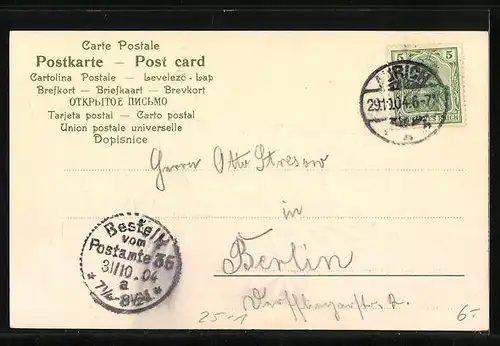 Carte Postale
Postkarte — Post card
Cartolina Postale — Levelező-Lap
Brefkort — Briefkaart — Brevkort
ОТКРЫТОЕ ПИСЬМО
Tarjeta postal — Carto postal
Union postale universelle
Dopisnice
5 5
AURICH
29.10.04.6-7
Herrn Otto Stresow
in
Berlin
Bestellt
vom
Postamte 35
31/10.04
a
7¼-8½V
25-1
6.-